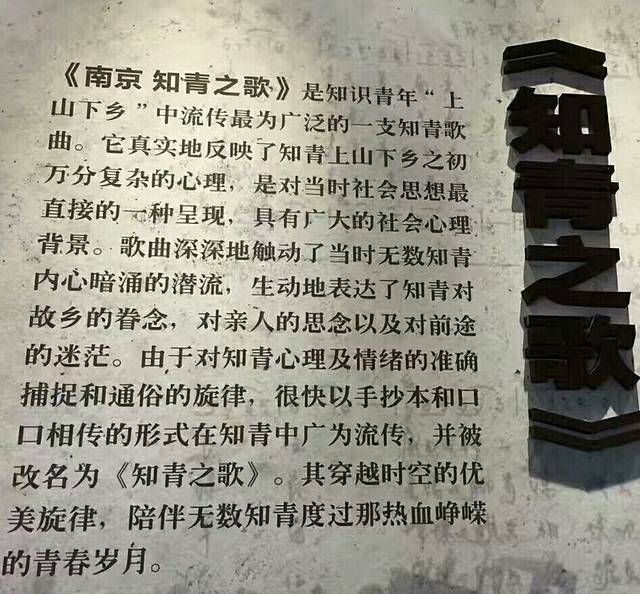 《南京 知青之歌》是知识青年“上
山下乡”中流传最为广泛的一支知青歌
曲。它真实地反映了知青上山下乡之初
万分复杂的心理，是对当时社会思想最
直接的一种呈现，具有广大的社会心理
背景。歌曲深深地触动了当时无数知青
内心暗涌的潜流，生动地表达了知青对
故乡的眷念，对亲人的思念以及对前途
的迷茫。由于对知青心理及情绪的准确
捕捉和通俗的旋律，很快以手抄本和口
口相传的形式在知青中广为流传，并被
改名为《知青之歌》。其穿越时空的优
美旋律，陪伴无数知青度过那热血峥嵘
的青春岁月。
《知青之歌》